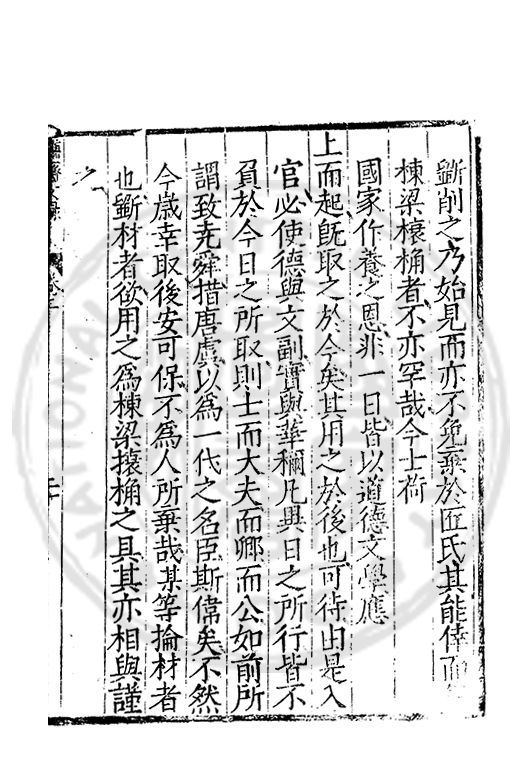 斵削之乃始見而亦不免棄於匠氏其能倖而
棟梁榱桷者不亦罕哉今士荷
國家作養之恩非一日皆以道德文學應
上而起旣取之於今矣其用之於後也可待由是入
官必使德與文副實與華稱凡異日之所行皆不
負於今日之所取則士而大夫而卿而公如前所
謂致堯舜措唐虞以爲一代之名臣斯偉矣不然
今歲幸取後安可保不爲人所棄哉某等掄材者
也斵材者欲用之爲棟梁榱桷之具其亦相與謹
之